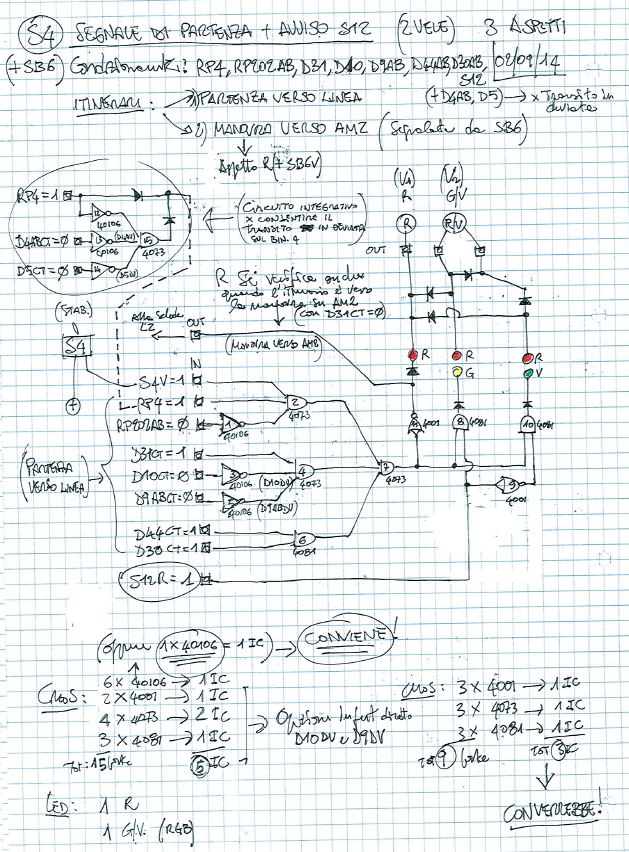 S4 SEGNALE DI PARTENZA + AVVISO S12 (2 VELE) 3 ASPETTI
(+SB6) Condizionamenti: RP4, RP202AB, D31, D10, D9AB, D44AB, D30AB, S12 02/09/14
ITINERARI: 1) PARTENZA VERSO LINEA (+D4AB, D5) → x Transito in deviata
2) MANOVRA VERSO AM2 (Segnalata da SB6)
Aspetto R (+SB6V)
(V1) (V2)
R G/V
R R/V
RP4=1
40106
D4ABCT=0 13 (D4NV) 15
40106 4073
D5CT=0 14 (D5NV)
CIRCUITO INTEGRATIVO
x CONSENTIRE IL
TRANSITO IN DEVIATA
SUL BIN. 4
OUT
R Si verifica anche
quando l'itinerario è verso
la manovra su AM2
(con D31CT=0)
(STAB.)
S4
Alla scheda
L2
OUT
(MANOVRA VERSO AM2)
R R R
G V
IN
S4V=1
RP4=1 2
4073
RP202AB=0 1
40106
11 4001 8 4081 10 4081
(PARTENZA
VERSO LINEA)
D31CT=1
D10CT=0 3 (D10DV) 4 7
40106 4073 4073
D9ABCT=0 5 (D9ABDV)
40106
9
4001
D44CT=1 6
D30CT=1 4081
S12R=1
(oppure 1x40106 = 1 IC) → CONVIENE!
6 x 40106 → 1 IC
CMOS: 2 x 4001 → 1 IC
4 x 4073 → 2 IC
3 x 4081 → 1 IC
Tot: 15 porte 5 IC
→ Opzione Input diretto
D10DV e D9DV
CMOS: 3 x 4001 → 1 IC
3 x 4073 → 1 IC
3 x 4081 → 1 IC
Tot 9 porte Tot 3 IC
CONVERREBBE!
LED: 1 R
1 G/V. (RGB)